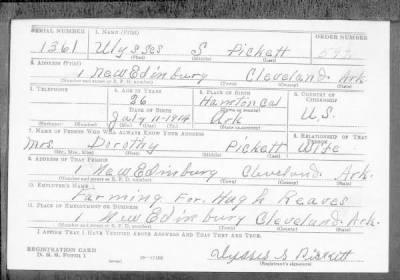 SERIAL NUMBER 1. NAME (Print) ORDER NUMBER
1361 Ulysses S Pickett
(First) (Middle) (Last)
2. ADDRESS (Print)
1 New Edinburg Cleveland. Ark.
(Number and street or R. F. D. number) (Town) (County) (State)
3. TELEPHONE 4. AGE IN YEARS 5. PLACE OF BIRTH 6. COUNTRY OF CITIZENSHIP
26 Hamton Cal
DATE OF BIRTH
July 11-1914 Ark U.S.
(Exchange) (Number) (Mo.) (Day) (Yr.) (State or country)
7. NAME OF PERSON WHO WILL ALWAYS KNOW YOUR ADDRESS 8. RELATIONSHIP OF THAT PERSON
Mrs. Dorothy Pickett Wife
(Mr., Mrs., Miss) (First) (Middle) (Last)
9. ADDRESS OF THAT PERSON
1 New Edinburg Cleveland. Ark.
(Number and street or R. F. D. number) (Town) (County) (State)
10. EMPLOYER'S NAME
Farming For. Hugh Reaves
11. PLACE OF EMPLOYMENT OR BUSINESS
1 New Edinburg Cleveland. Ark.
(Number and street or R. F. D. number) (Town) (County) (State)
I AFFIRM THAT I HAVE VERIFIED ABOVE ANSWERS AND THAT THEY ARE TRUE.
REGISTRATION CARD
D. S. S. FORM 1 Ulysses S Pickett
(Registrant's signature)